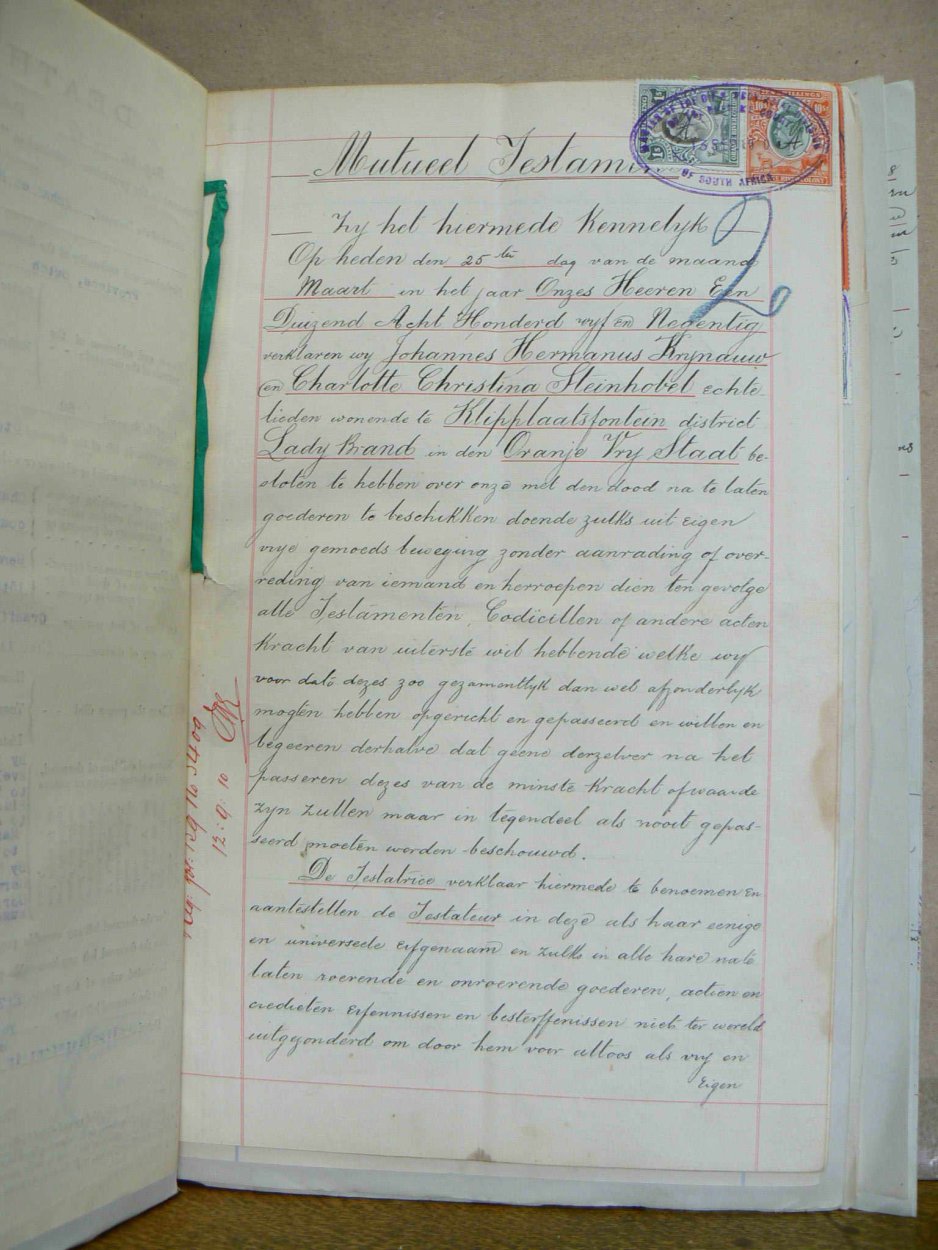 Mutueel Testament
Zy het hiermede Kennelyk
Op heden den 25 ste dag van de maand
Maart in het jaar Onzes Heeren Een
Duizend Acht Honderd vyf en Negentig
verklaren wy Johannes Hermanus Krynauw
en Charlotte Christina Steinhobel echte-
lieden wonende te Klipplaatsfontein district
Lady Brand in den Oranje Vry Staat be-
sloten te hebben over onze met den dood na te laten
goederen te beschikken doende zulks uit eigen
vrye gemoeds beweging zonder aanrading of over-
reding van iemand en herroepen dien ten gevolge
alle Testamenten, Codicillen of andere acten
kracht van uiterste wil hebbende welke wy
voor dato dezes zoo gezamentlyk dan wel afzonderlyk
mogten hebben opgericht en gepasseerd en willen en
begeeren derhalve dat geene derzelver na het
passeren dezes van de minste kracht of waarde
zyn zullen maar in tegendeel als nooit gepas-
seerd moeten worden beschouwd.
De Testatrice verklaar hiermede te benoemen en
aantestellen de Testateur in deze als haar eenige
en universeele erfgenaam en zulks in alle hare nate
laten roerende en onroerende goederen, actien en
credieten erfennissen en besterffenissen niet ter wereld
uitgezonderd om door hem voor altoos als vry en
Eigen
2
12:9:10
OF SOUTH AFRICA